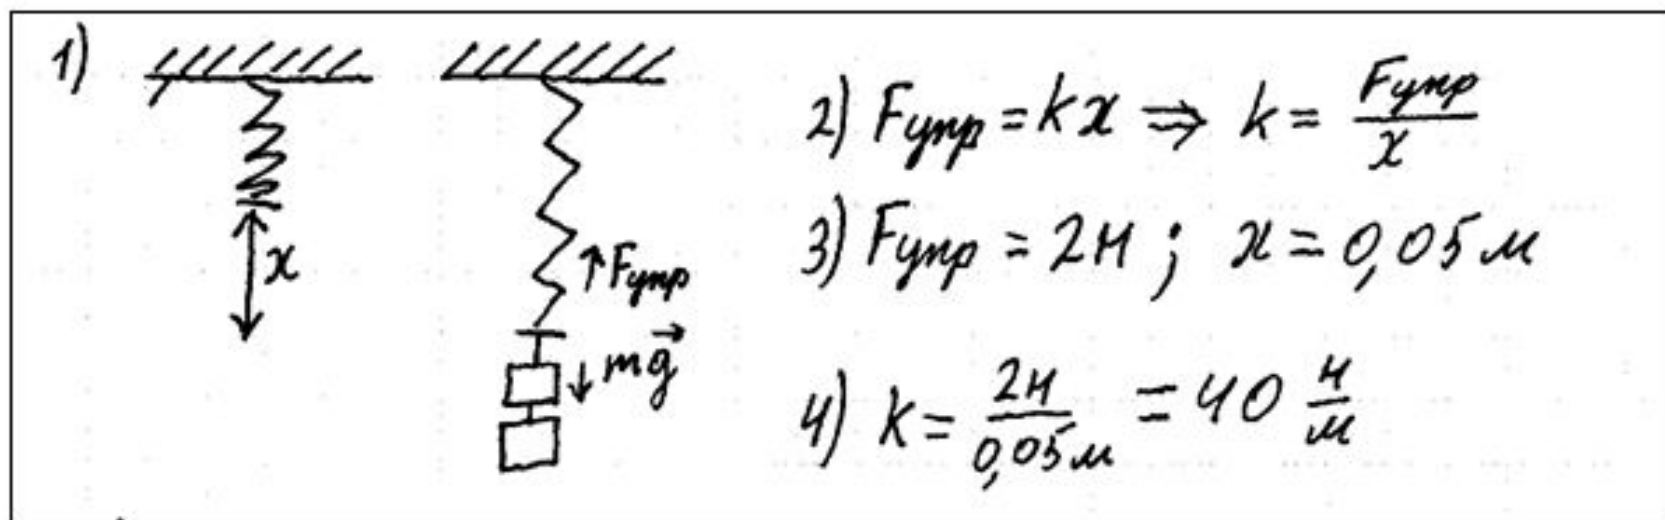 1)
x
↑Fупр
↓ mg⃗
2) Fупр = kx ⇒ k = Fупр/x
3) Fупр = 2Н ; x = 0,05 м
4) k = 2Н/0,05м = 40 Н/м